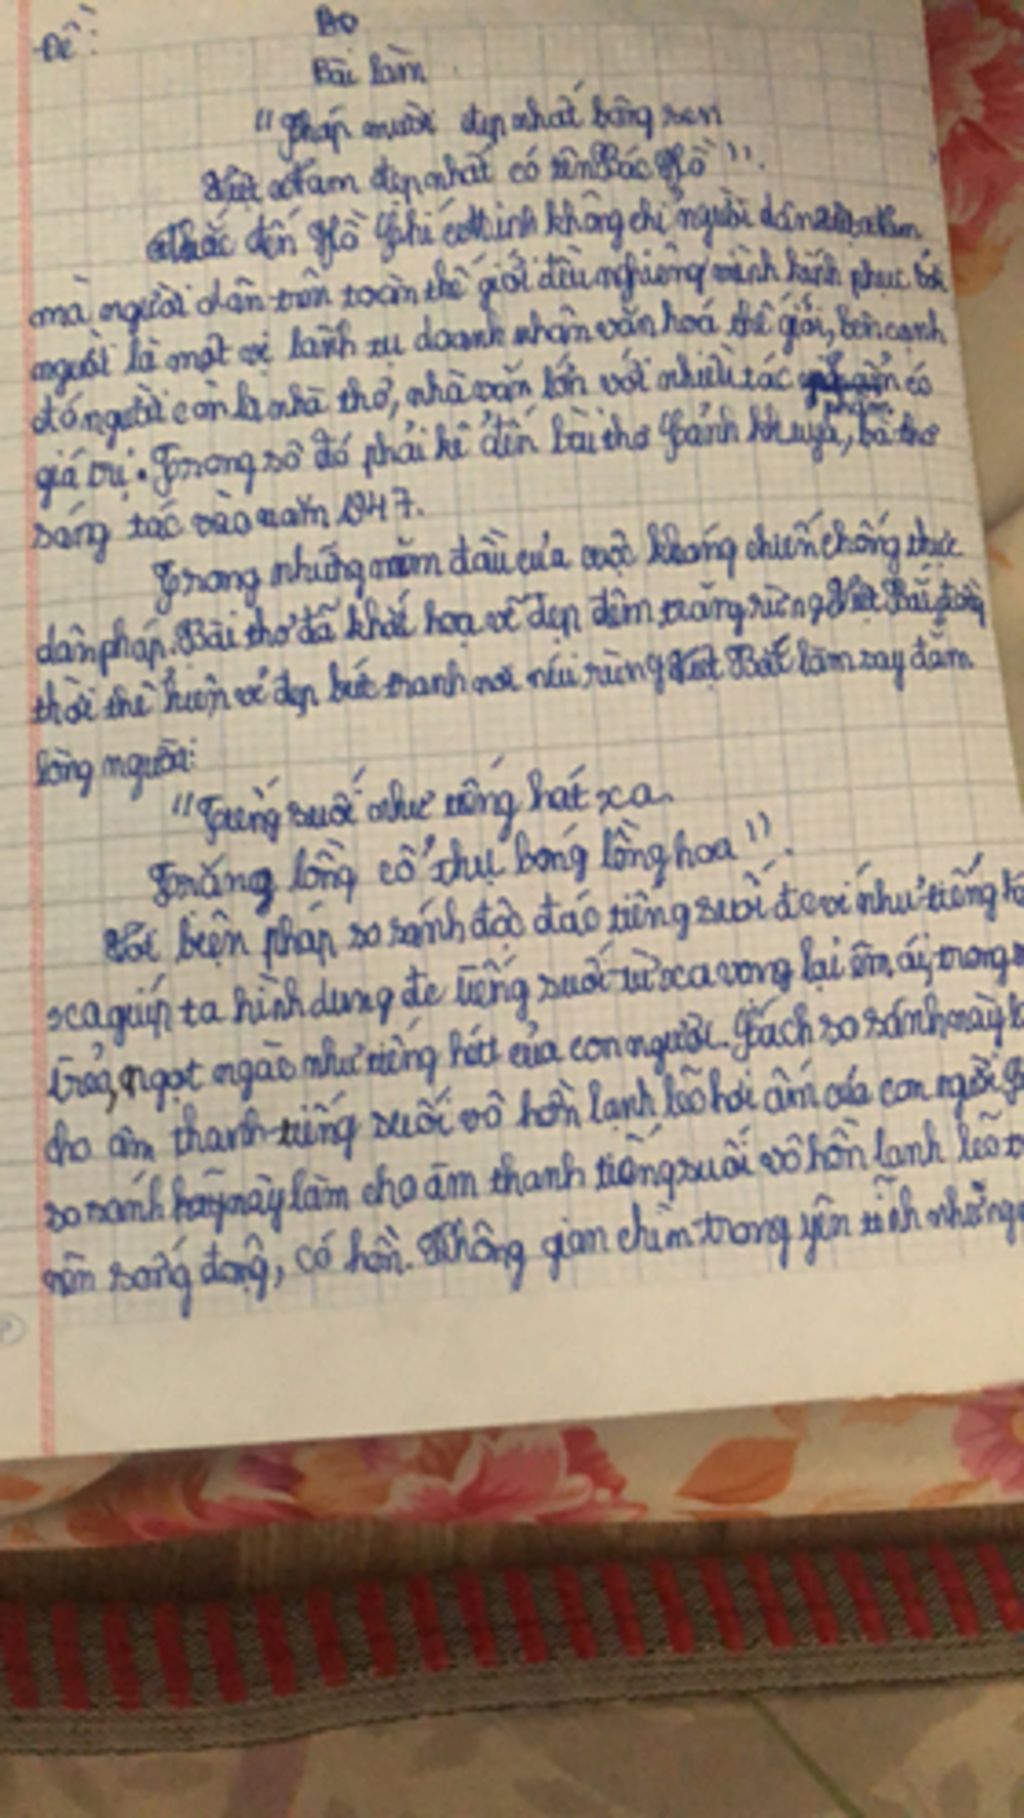 Đề:
Bài làm
"Tháp mười đẹp nhất bông sen
Việt Nam đẹp nhất có tên Bác Hồ".
Nhắc đến Hồ Chí Minh không chỉ người dân Việt Nam
mà người dân trên toàn thế giới đều nghiêng mình kính phục bởi
người là một vị lãnh tụ doanh nhân văn hoá thế giới, bên cạnh
đó người còn là nhà thơ, nhà văn lớn với nhiều tác phẩm có
giá trị. Trong số đó phải kể đến bài thơ Cảnh khuya, bà thơ
sáng tác vào năm 1947.
Trong những năm đầu của cuộc kháng chiến chống thực
dân pháp. Bài thơ đã khắc hoạ vẻ đẹp đêm trăng rừng Việt Bắc, đồng
thời thể hiện vẻ đẹp bức tranh nơi núi rừng Việt Bắc làm say đắm
lòng người:
"Tiếng suối như tiếng hát xa.
Trăng lồng cổ thụ bóng lồng hoa".
Với biện pháp so sánh độc đáo tiếng suối đc ví như tiếng
xa giúp ta hình dung đc tiếng suối từ xa vọng lại êm ái, trong
trẻo, ngọt ngào như tiếng hát của con người. Cách so sánh này
cho âm thanh tiếng suối vô hồn lạnh lẽo hơi ấm của con người
so sánh này làm cho âm thanh tiếng suối vô hồn lạnh lẽo
nên sống động, có hồn. Không gian chìm trong yên tĩnh nhưng